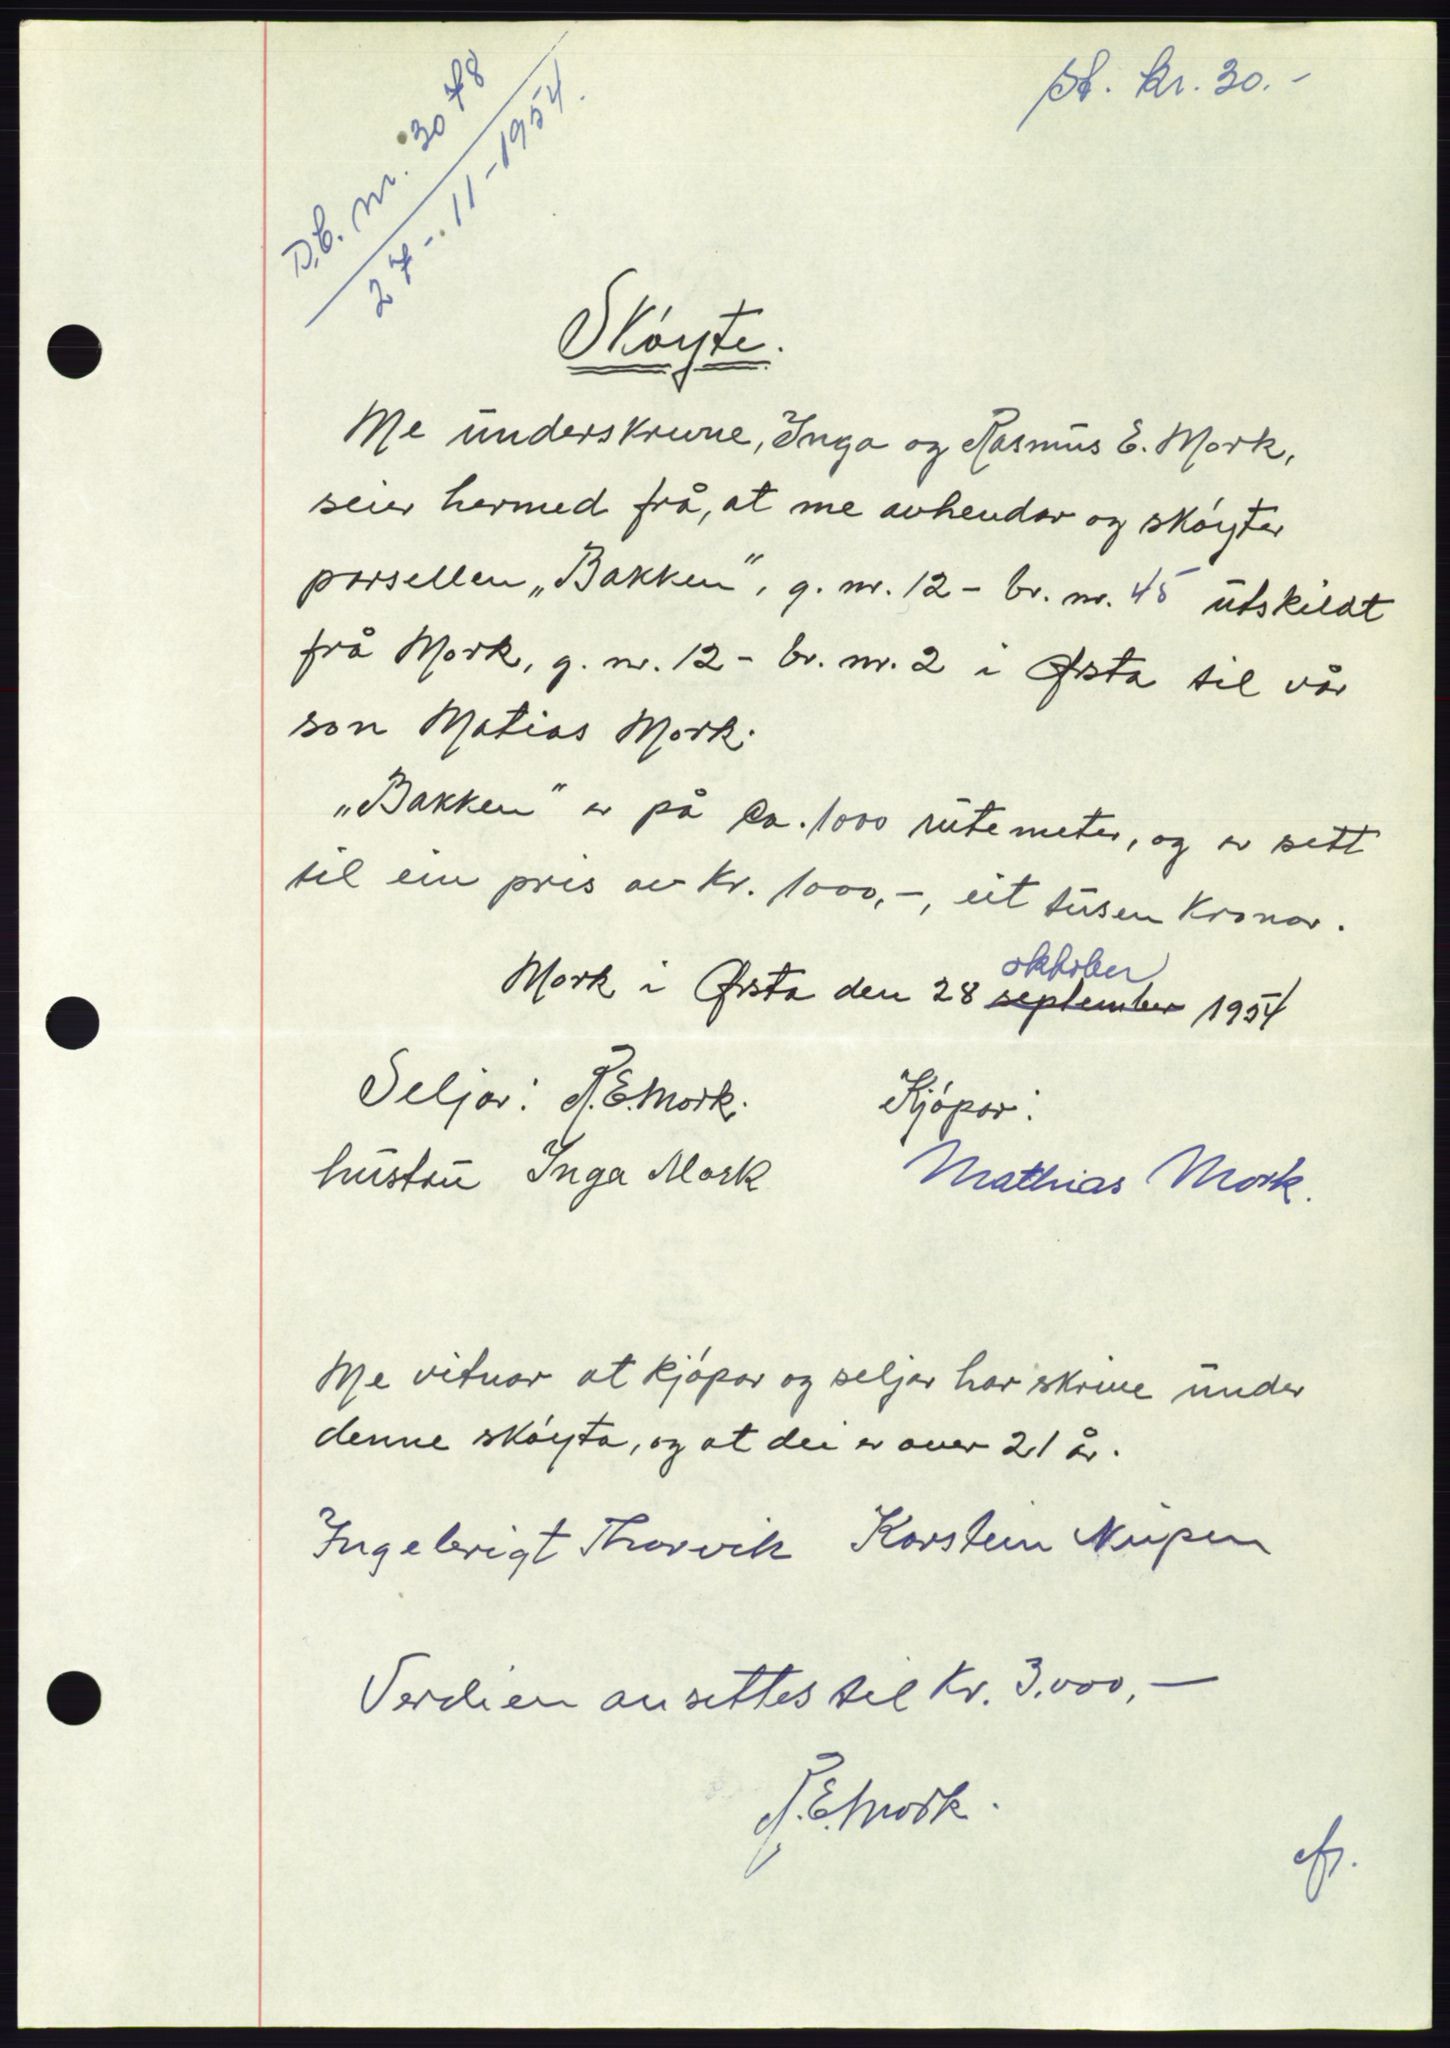 st. kr. 30.-
D.b. nr. 3078
27-11-1954.
Skóyte.
Me underskrivne, Inga og Rasmus E. Mork,
seier hermed frå, at me avhendar og skóyter
parsellen „Bakken", g. nr. 12 - br. nr. 45 utskildt
frå Mork, g. nr. 12 - br. nr. 2 i Ørsta til vår
son Matias Mork.
„Bakken" er på ca. 1000 rutemeter, og er sett
til ein pris av kr. 1000,-, eit tusen kronor.
oktober
Mork i Ørsta den 28 september 1954
Seljar: R.E.Mork. Kjópar:
hustru Inga Mork Mathias Mork.
Me vitnar at kjópar og seljar har skrive under
denne skóyta, og at dei er over 21 år.
Ingebrigt Thorvik Karstein Nupen
Verdien ansettes til kr. 3.000,-
R.E.Mork.